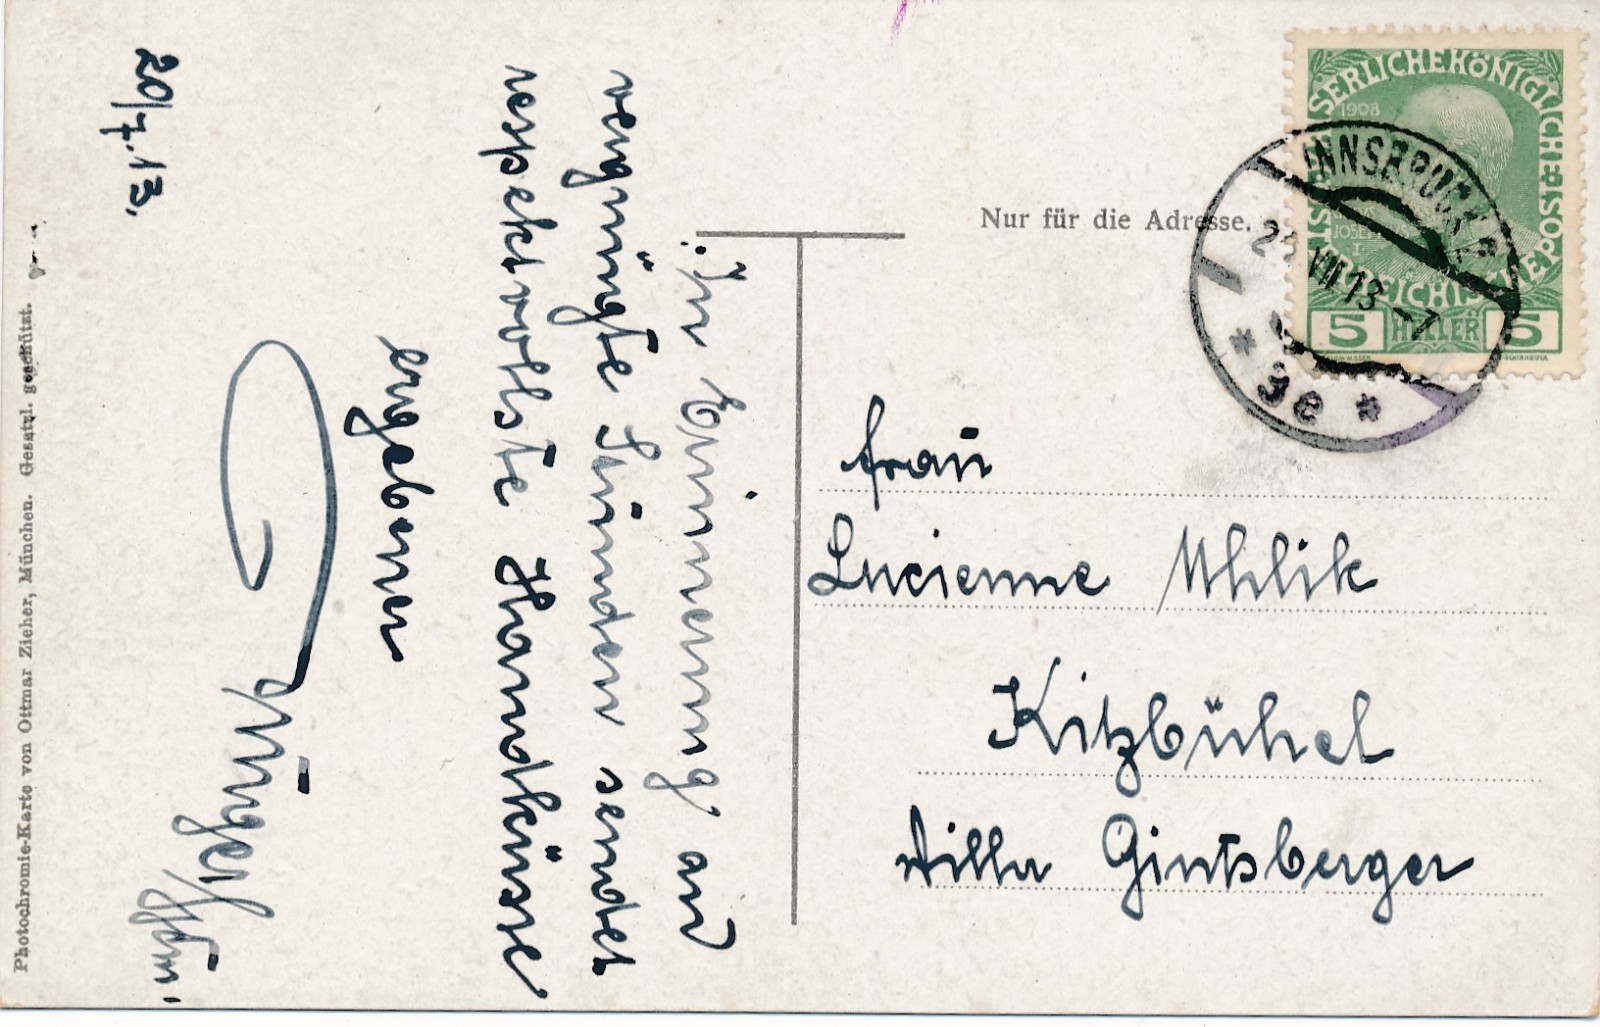 Nur für die Adresse.
KAISERLICHE KÖNIGLICHE ÖSTERREICHISCHE POST
1908
5 HELLER 5
INNSBRUCK 2
VII 13 -7
* 3e *
Frau
Lucienne Uhlik
Kitzbühel
Villa Gintsberger
In Erinnerung an
vergnügte Stunden sendet
respektvollste Handküsse
ergebener
20/7.13.
Photochromie-Karte von Ottmar Zieher, München. Gesetzl. geschützt.